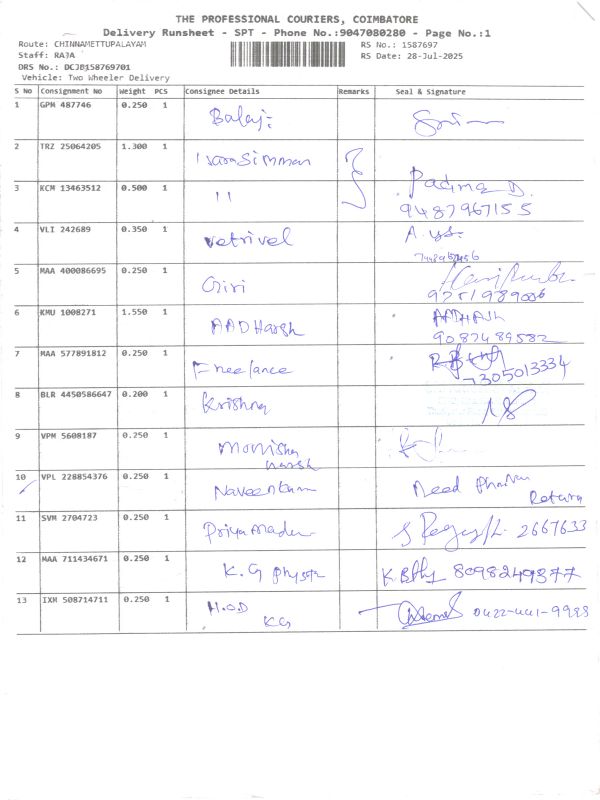 THE PROFESSIONAL COURIERS, COIMBATORE
Delivery Runsheet - SPT - Phone No.:9047080280 - Page No.:1
Route: CHINNAMETTUPALAYAM RS No.: 1587697
Staff: RAJA RS Date: 28-Jul-2025
DRS No.: DCJB158769701
Vehicle: Two Wheeler Delivery
S No Consignment No Weight PCS Consignee Details Remarks Seal & Signature
1 GPM 487746 0.250 1 Balaji
2 TRZ 25064205 1.300 1
3 KCM 13463512 0.500 1 " Padma D.
9487967155
4 VLI 242689 0.350 1 vetrivel
5 MAA 400086695 0.250 1 Giri
9251989006
6 KMU 1008271 1.550 1 AADHarsh AADHASH
9087489582
7 MAA 577891812 0.250 1 Freelance
7305013334
8 BLR 4450586647 0.200 1 Krishna
9 VPM 5608187 0.250 1 Monisha
harsh
10 VPL 228854376 0.250 1 Naveenkum Need
Return
11 SVM 2704723 0.250 1 2667633
12 MAA 711434671 0.250 1 K.G 8098249377
13 IXM 508714711 0.250 1 H.O.D 0422-441-9988
KG